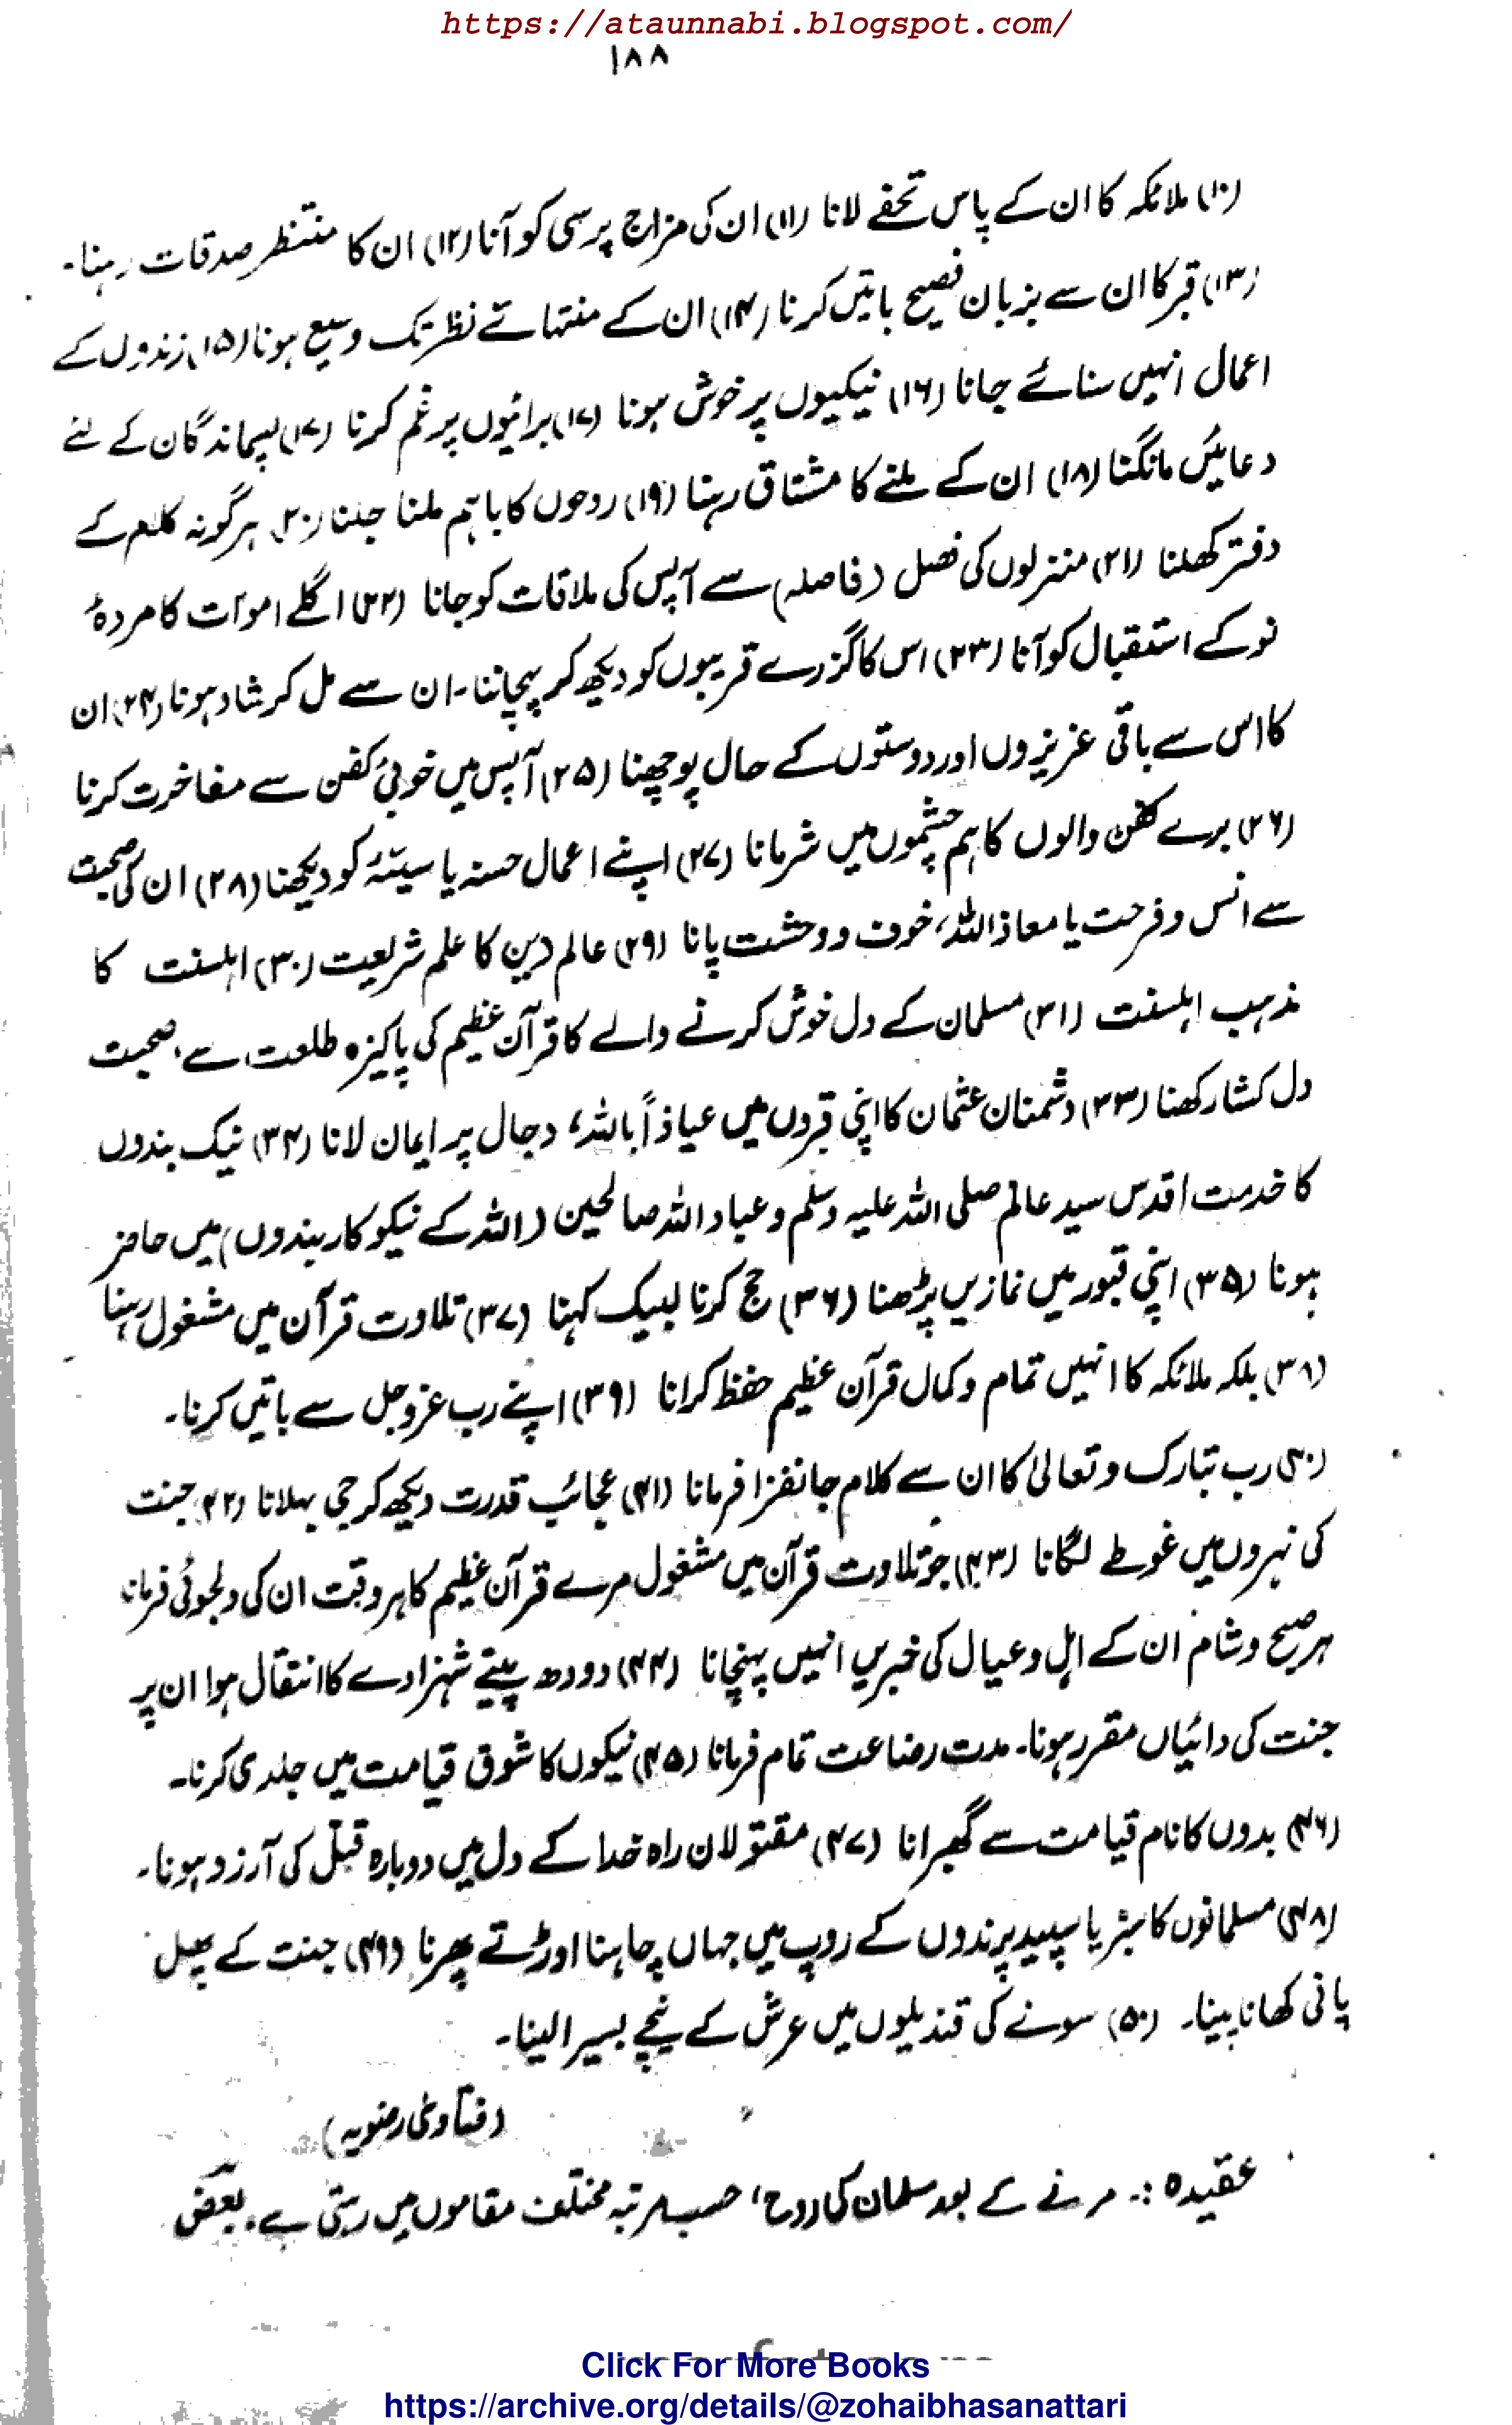 https://ataunnabi.blogspot.com/
۱۸۸
(۱۰) ملائکہ کا ان کے پاس تحفے لانا (۱۱) ان کی مزاج پرسی کو آنا (۱۲) ان کا منتظر صدقات رہنا۔
(۱۳) قبر کا ان سے بزبان فصیح باتیں کرنا (۱۴) ان کے منتہائے نظر تک وسیع ہونا (۱۵) زندوں کے
اعمال انہیں سنائے جانا (۱۶) نیکیوں پر خوش ہونا (۱۷) برائیوں پر غم کرنا (۱۷) پسماندگان کے لئے
دعائیں مانگنا (۱۸) ان کے ملنے کا مشتاق رہنا (۱۹) روحوں کا باہم ملنا جلنا (۲۰) ہر گونہ کلام کے
دفتر کھلنا (۲۱) منزلوں کی فصل (فاصلہ) سے آپس کی ملاقات کو جانا (۲۲) اگلے اموات کا مردۂ
نو کے استقبال کو آنا (۲۳) اس کا گزرے قریبوں کو دیکھ کر پہچاننا۔ ان سے مل کر شاد ہونا (۲۴) ان
کا اس سے باقی عزیزوں اور دوستوں کے حال پوچھنا (۲۵) آپس میں خوبیٔ کفن سے مفاخرت کرنا
(۲۶) برے کفن والوں کا ہم چشموں میں شرمانا (۲۷) اپنے اعمال حسنہ یا سیئہ کو دیکھنا (۲۸) ان کی صحبت
سے انس و فرحت یا معاذ اللہ، خوف و وحشت پانا (۲۹) عالم دین کا علم شریعت (۳۰) اہلسنت کا
مذہب اہلسنت (۳۱) مسلمان کے دل خوش کرنے والے کا قرآن عظیم کی پاکیزہ طلعت سے، صحبت
دل کشا رکھنا (۳۳) دشمنان عثمان کا اپنی قبروں میں عیاذاً باللہ، دجال پر ایمان لانا (۳۴) نیک بندوں
کا خدمت اقدس سید عالم صلی اللہ علیہ وسلم و عباد اللہ صالحین (اللہ کے نیکو کار بندوں) میں حاضر
ہونا (۳۵) اپنی قبور میں نمازیں پڑھنا (۳۶) حج کرنا لبیک کہنا (۳۷) تلاوت قرآن میں مشغول رہنا
(۳۸) بلکہ ملائکہ کا انہیں تمام و کمال قرآن عظیم حفظ کرانا (۳۹) اپنے رب عزوجل سے باتیں کرنا۔
(۴۰) رب تبارک و تعالیٰ کا ان سے کلام جانفزا فرمانا (۴۱) عجائب قدرت دیکھ کر جی بہلانا (۴۲) جنت
کی نہروں میں غوطے لگانا (۴۳) جو تلاوت قرآن میں مشغول مرے قرآن عظیم کا ہر وقت ان کی دلجوئی فرمانا
ہر صبح و شام ان کے اہل و عیال کی خبریں انہیں پہنچانا (۴۴) دودھ پیتے شہزادے کا انتقال ہوا ان پر
جنت کی دائیاں مقرر ہونا۔ مدت رضاعت تمام فرمانا (۴۵) نیکوں کا شوق قیامت میں جلدی کرنا۔
(۴۶) بدوں کا نام قیامت سے گھبرانا (۴۷) مقتولان راہ خدا کے دل میں دوبارہ قتل کی آرزو ہونا۔
(۴۸) مسلمانوں کا سبز یا سپید پرندوں کے روپ میں جہاں چاہنا اوڑتے پھرنا (۴۹) جنت کے پھل
پانی کھانا پینا۔ (۵۰) سونے کی قندیلوں میں عرش کے نیچے بسیرا لینا۔
(فتاویٰ رضویہ)
عقیدہ :۔ مرنے کے بعد مسلمان کی روح، حسب مرتبہ مختلف مقاموں میں رہتی ہے۔ بعض
Click For More Books
https://archive.org/details/@zohaibhasanattari